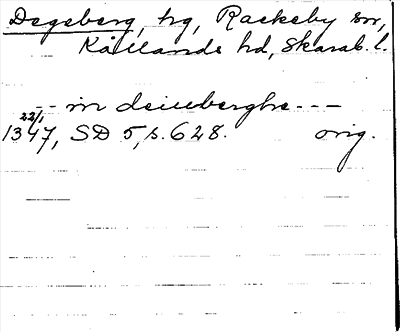 Degeberg, hg, Rackeby sn,
Kållands hd, Skarab. l.
-- in deiuberghe ---
22/1
1347, SD 5, s. 628. orig.